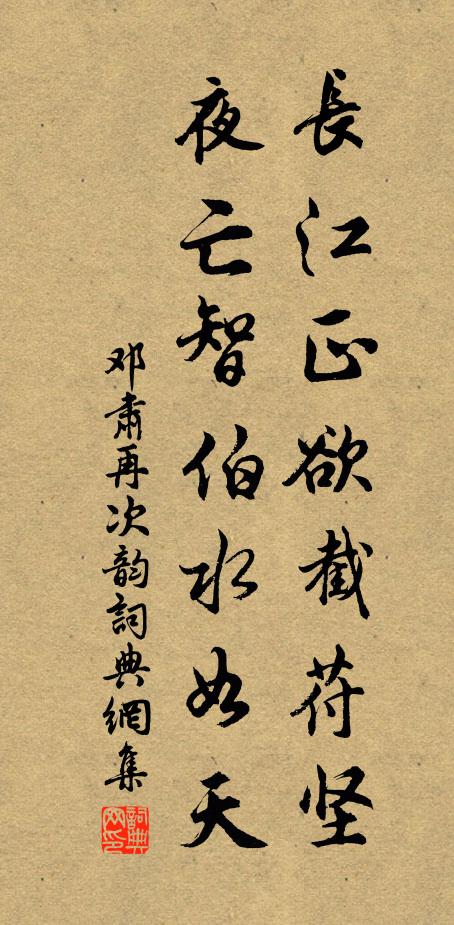 長江正欲截苻坚
夜亡智伯水如天
邓肅再次韵詞典網集
詞典网印